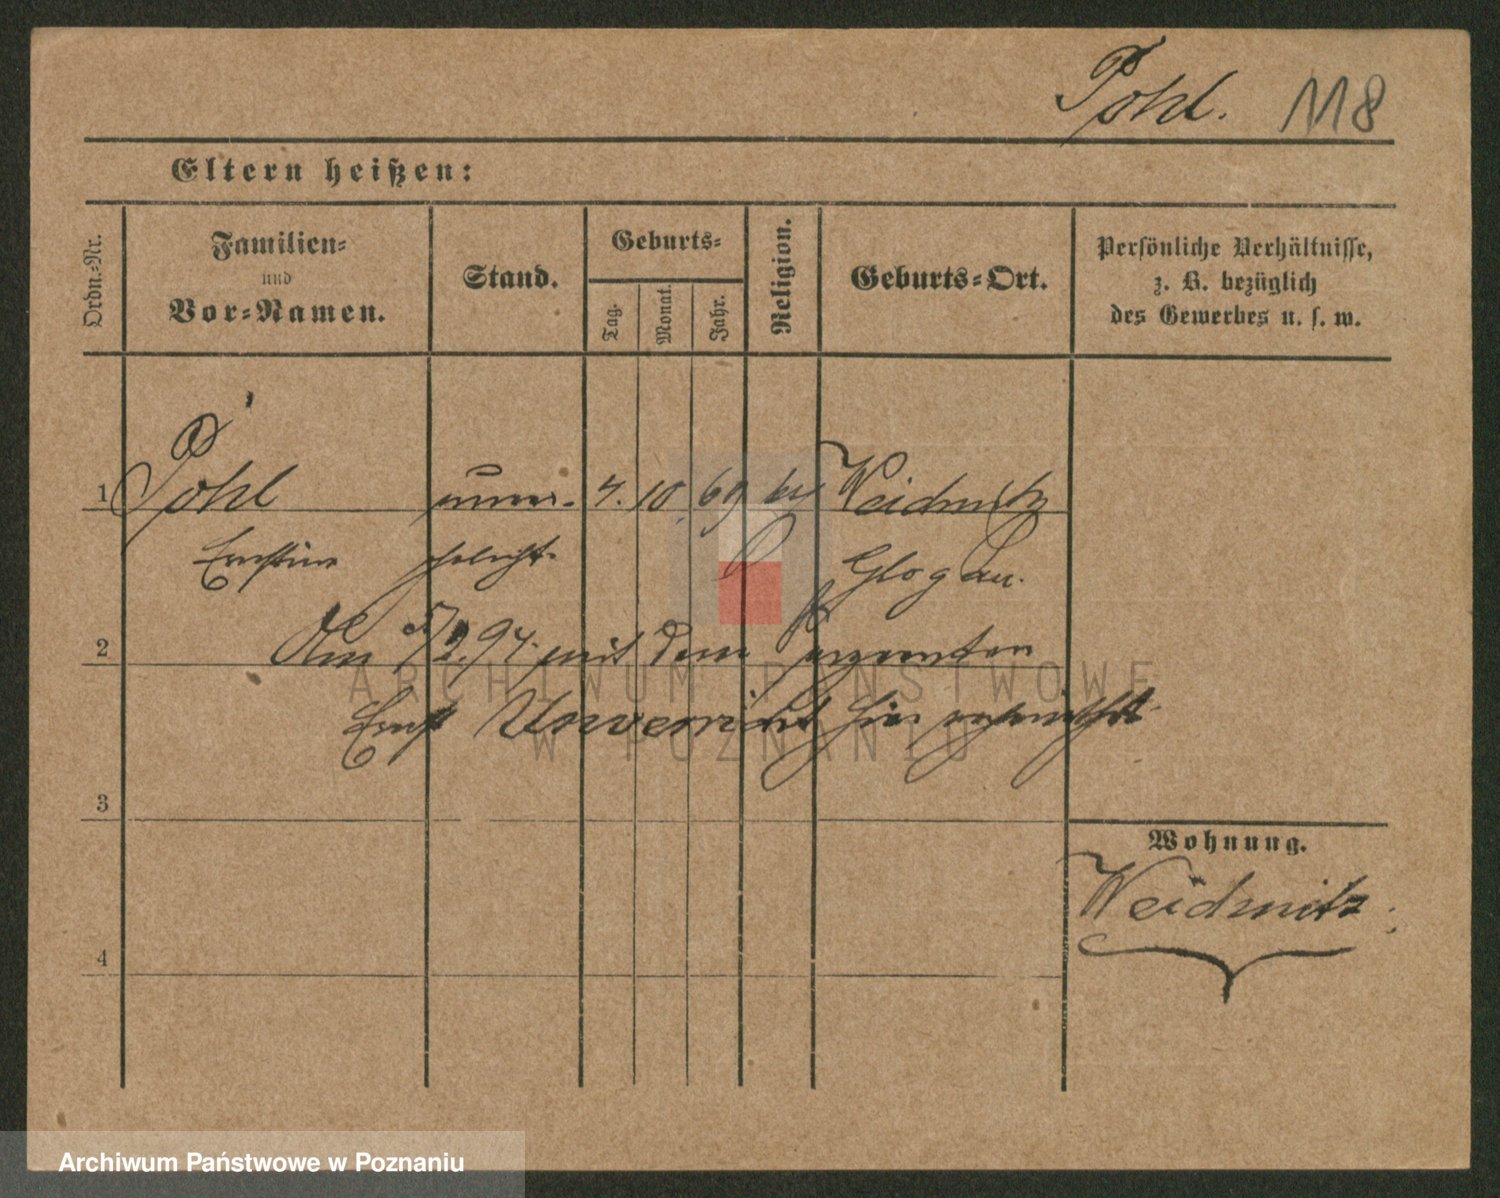 Pohl. 118
Eltern heißen:
Ordn.-Nr.
Familien-
und
Vor-Namen.
Stand.
Geburts-
Tag.
Monat.
Jahr.
Religion.
Geburts-Ort.
Persönliche Verhältnisse,
z. B. bezüglich
des Gewerbes u. s. w.
1 Pohl unver- 4. 10. 69 Weidnitz
Ernestine ehelicht. Glogau.
2 Am 5/2. 94. mit dem
Ernst Unverricht hier
3
Wohnung.
Weidnitz.
4
ARCHIWUM PAŃSTWOWE
W POZNANIU
Archiwum Państwowe w Poznaniu